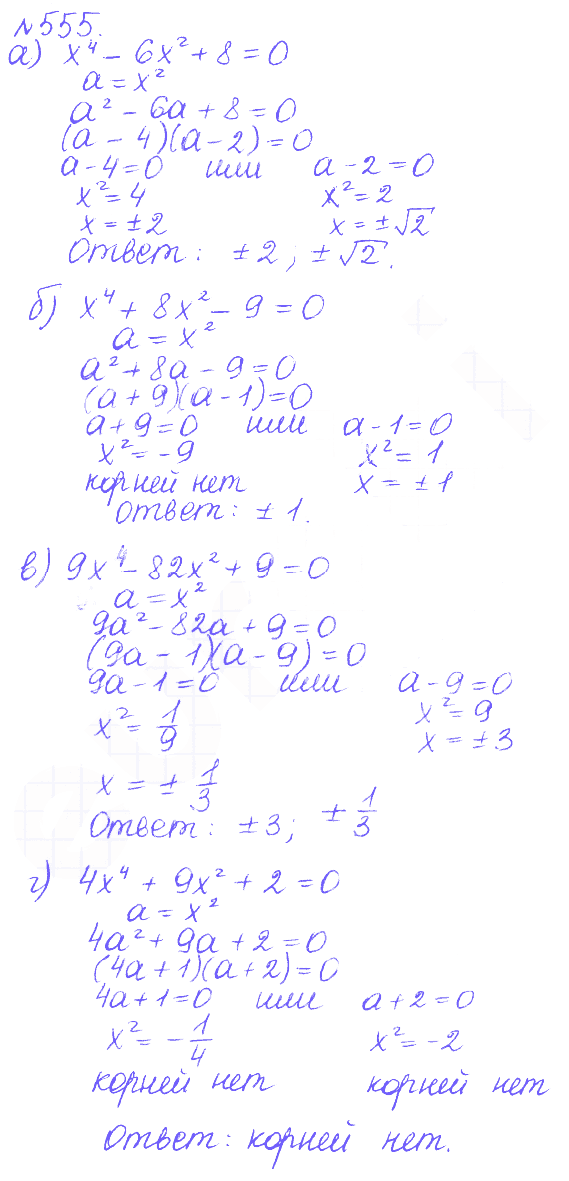 №555.
а) x⁴ - 6x² + 8 = 0
a = x²
a² - 6a + 8 = 0
(a - 4)(a - 2) = 0
a - 4 = 0 или a - 2 = 0
x² = 4 x² = 2
x = ±2 x = ±√2
Ответ: ±2; ±√2.
б) x⁴ + 8x² - 9 = 0
a = x²
a² + 8a - 9 = 0
(a + 9)(a - 1) = 0
a + 9 = 0 или a - 1 = 0
x² = -9 x² = 1
корней нет x = ±1
Ответ: ±1.
в) 9x⁴ - 82x² + 9 = 0
a = x²
9a² - 82a + 9 = 0
(9a - 1)(a - 9) = 0
9a - 1 = 0 или a - 9 = 0
x² = 1/9 x² = 9
x = ±1/3 x = ±3
Ответ: ±3; ±1/3
г) 4x⁴ + 9x² + 2 = 0
a = x²
4a² + 9a + 2 = 0
(4a + 1)(a + 2) = 0
4a + 1 = 0 или a + 2 = 0
x² = -1/4 x² = -2
корней нет корней нет
Ответ: корней нет.